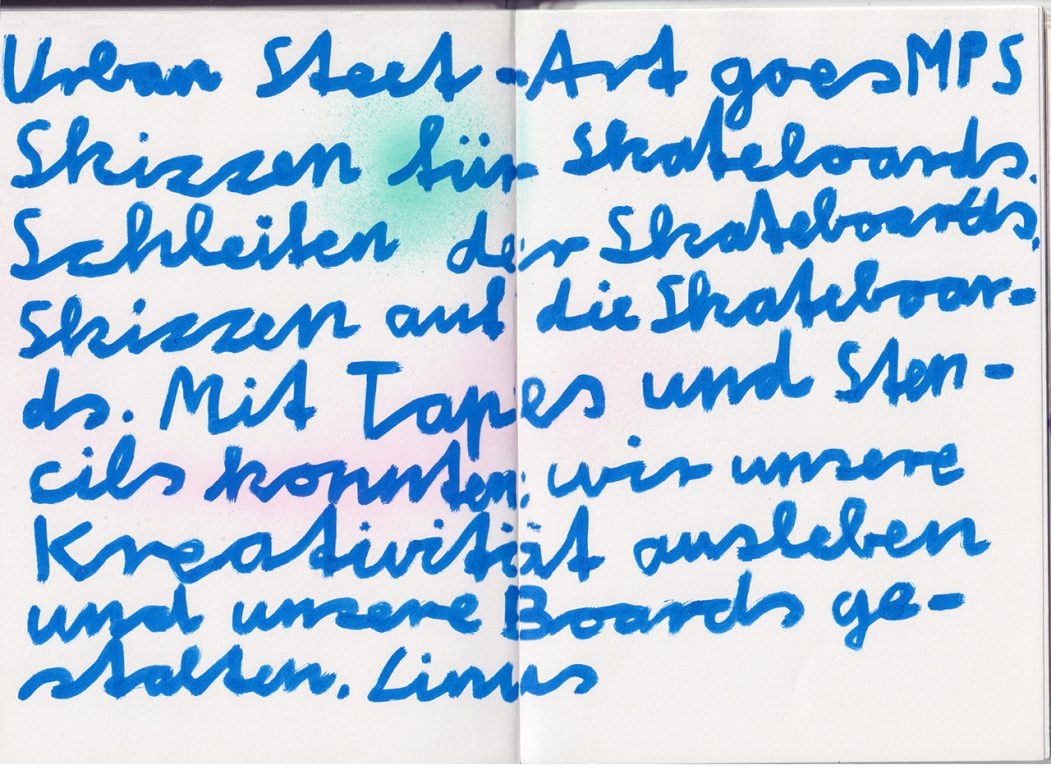 Urban Steet-Art goes MPS
Skizzen für Skateboards.
Schleifen der Skateboards.
Skizzen auf die Skateboar-
ds. Mit Tapes und Sten-
cils konnten wir unsere
Kreativität ausleben
und unsere Boards ge-
stalten. Linus